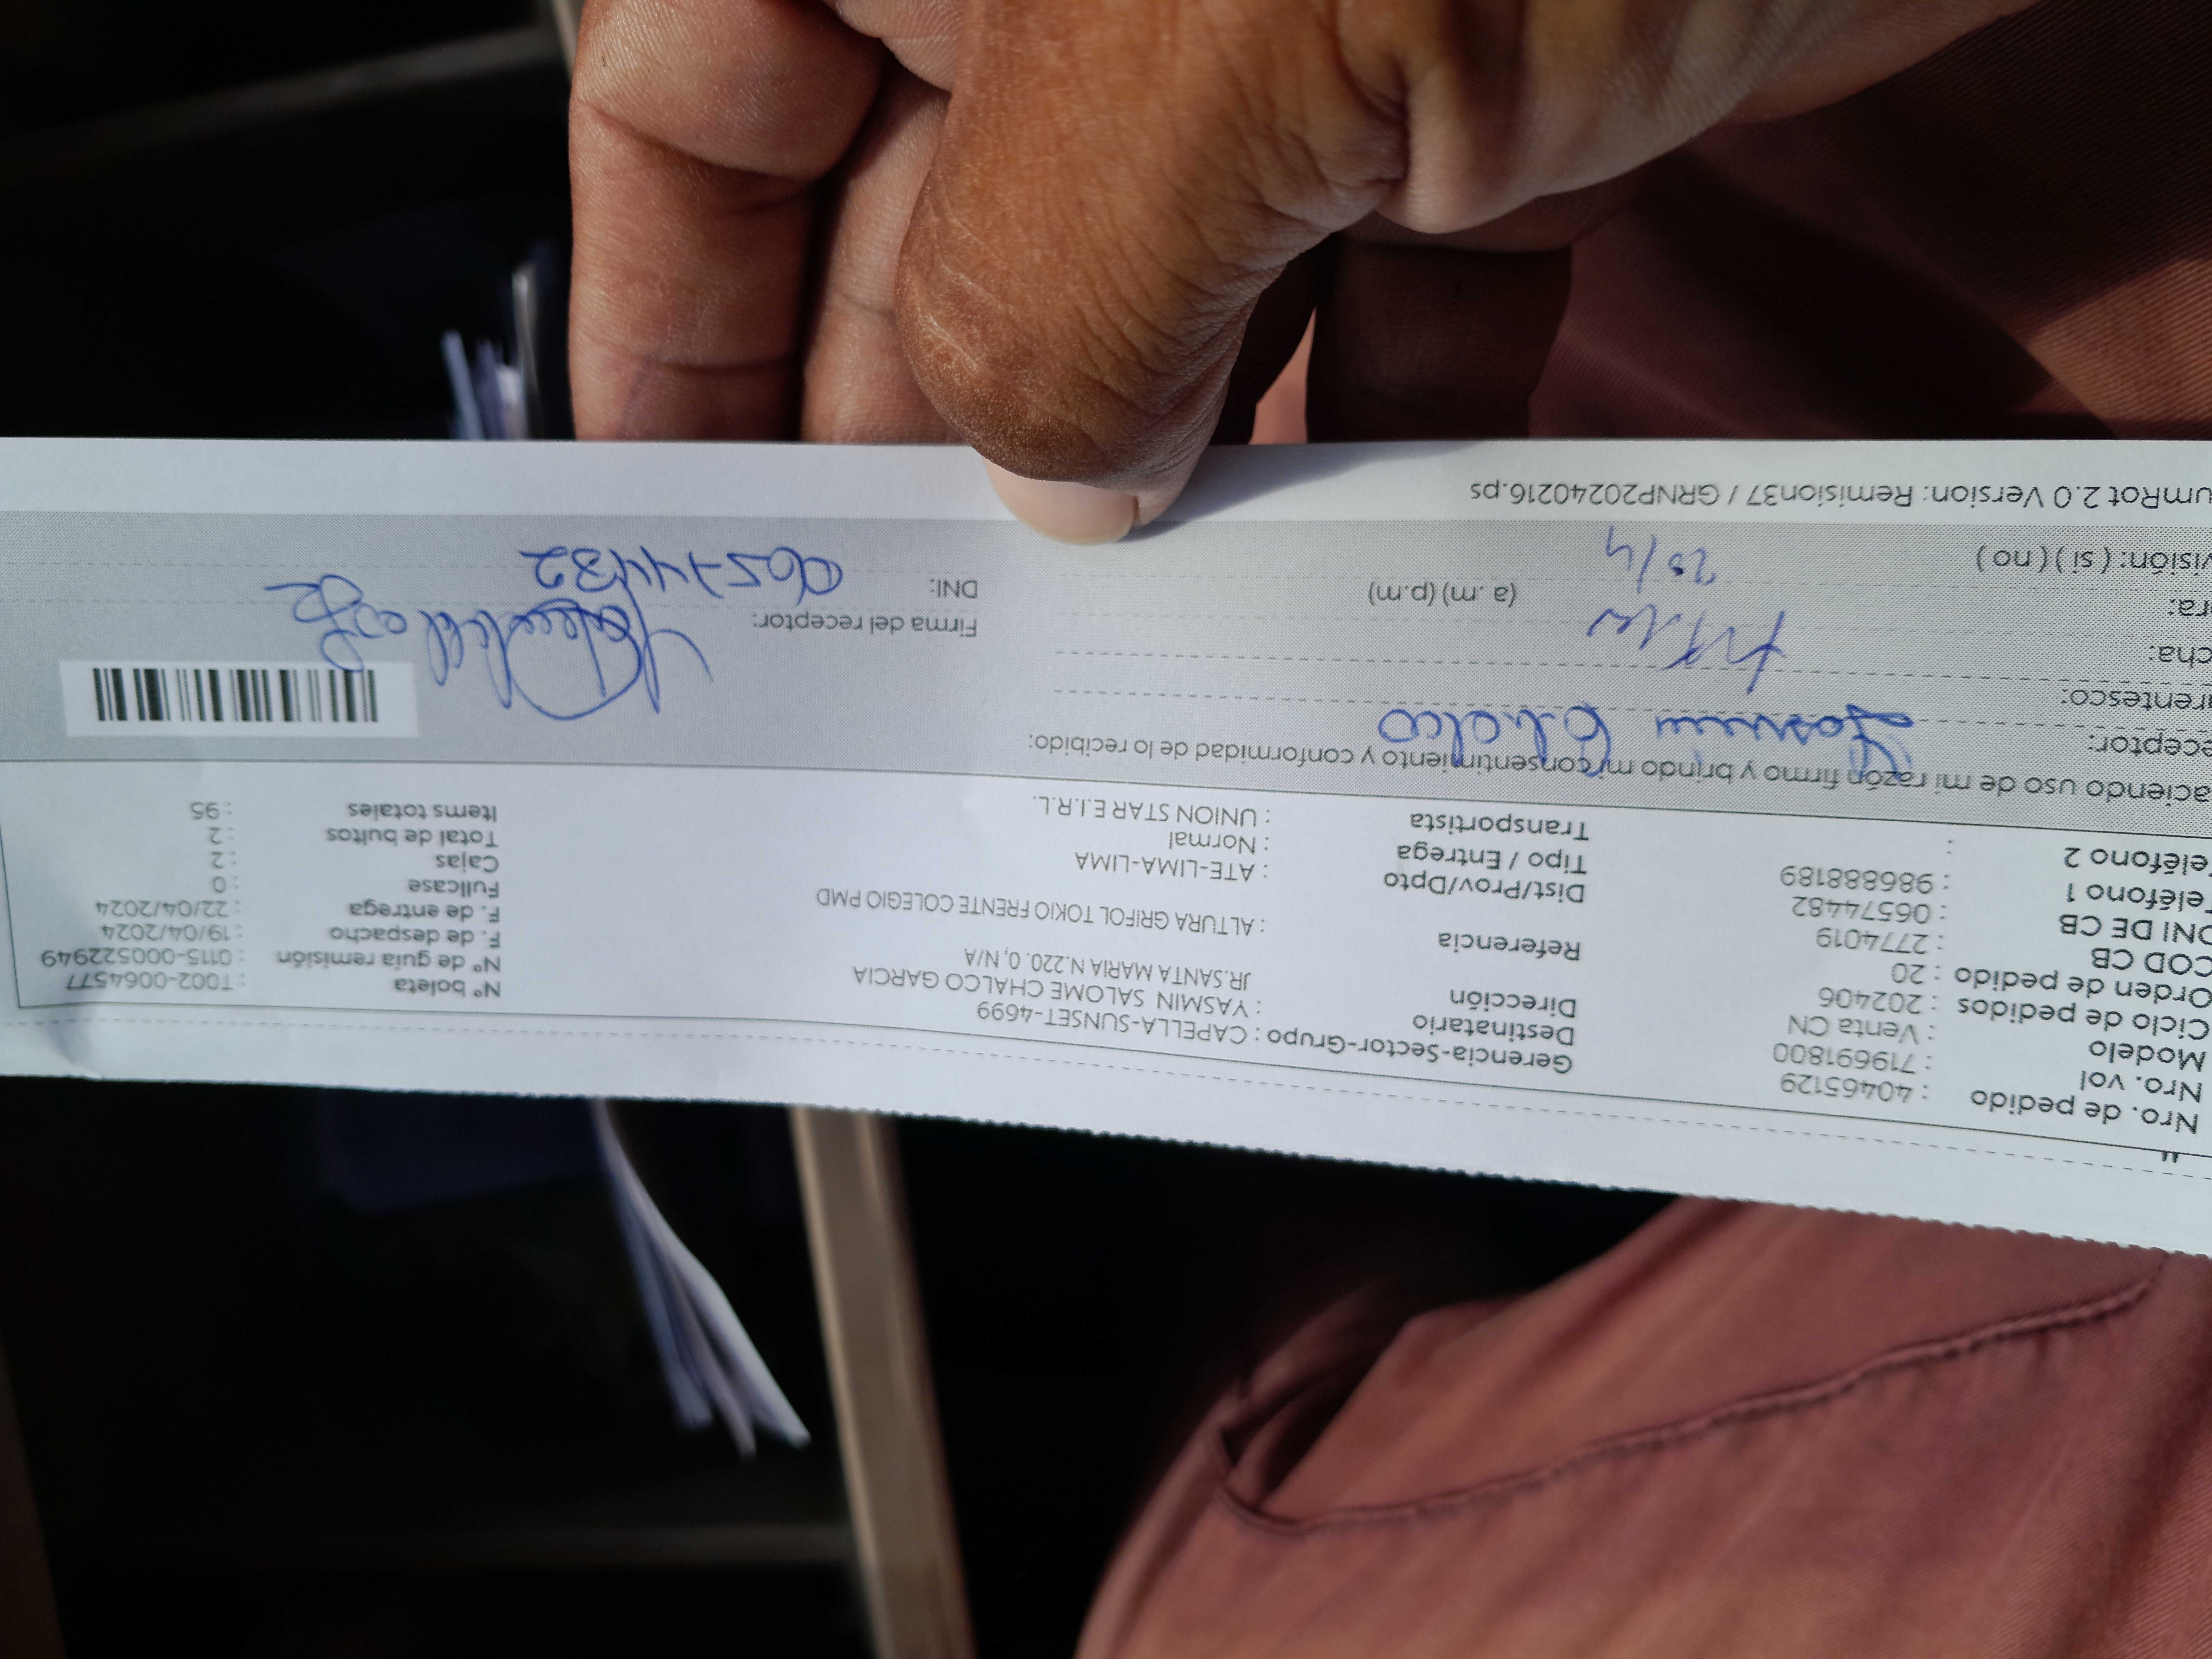 Nro. de pedido : 40465129
Nro. vol : 719691800
Modelo : Venta CN
Ciclo de pedidos : 202406
Orden de pedido : 20
COD CB : 2774019
DNI DE CB : 06574482
eléfono 1 : 986888189
eléfono 2 :
Gerencia-Sector-Grupo : CAPELLA-SUNSET-4699
Destinatario : YASMIN SALOME CHALCO GARCIA
Dirección JR.SANTA MARIA N.220. 0, N/A
Referencia : ALTURA GRIFOL TOKIO FRENTE COLEGIO PMD
Dist/Prov/Dpto : ATE-LIMA-LIMA
Tipo / Entrega : Normal
Transportista : UNION STAR E.I.R.L.
Nº boleta : T002-0064577
Nº de guía remisión : 0115-000522949
F. de despacho : 19/04/2024
F. de entrega : 22/04/2024
Fullcase : 0
Cajas : 2
Total de bultos : 2
Items totales : 95
aciendo uso de mi razón firmo y brindo mi consentimiento y conformidad de lo recibido:
eceptor: Chalco
rentesco:
cha:
ra: (a .m) (p.m)
visión: ( si ) ( no )
Firma del receptor:
DNI:
umRot 2.0 Version: Remision37 / GRNP20240216.ps